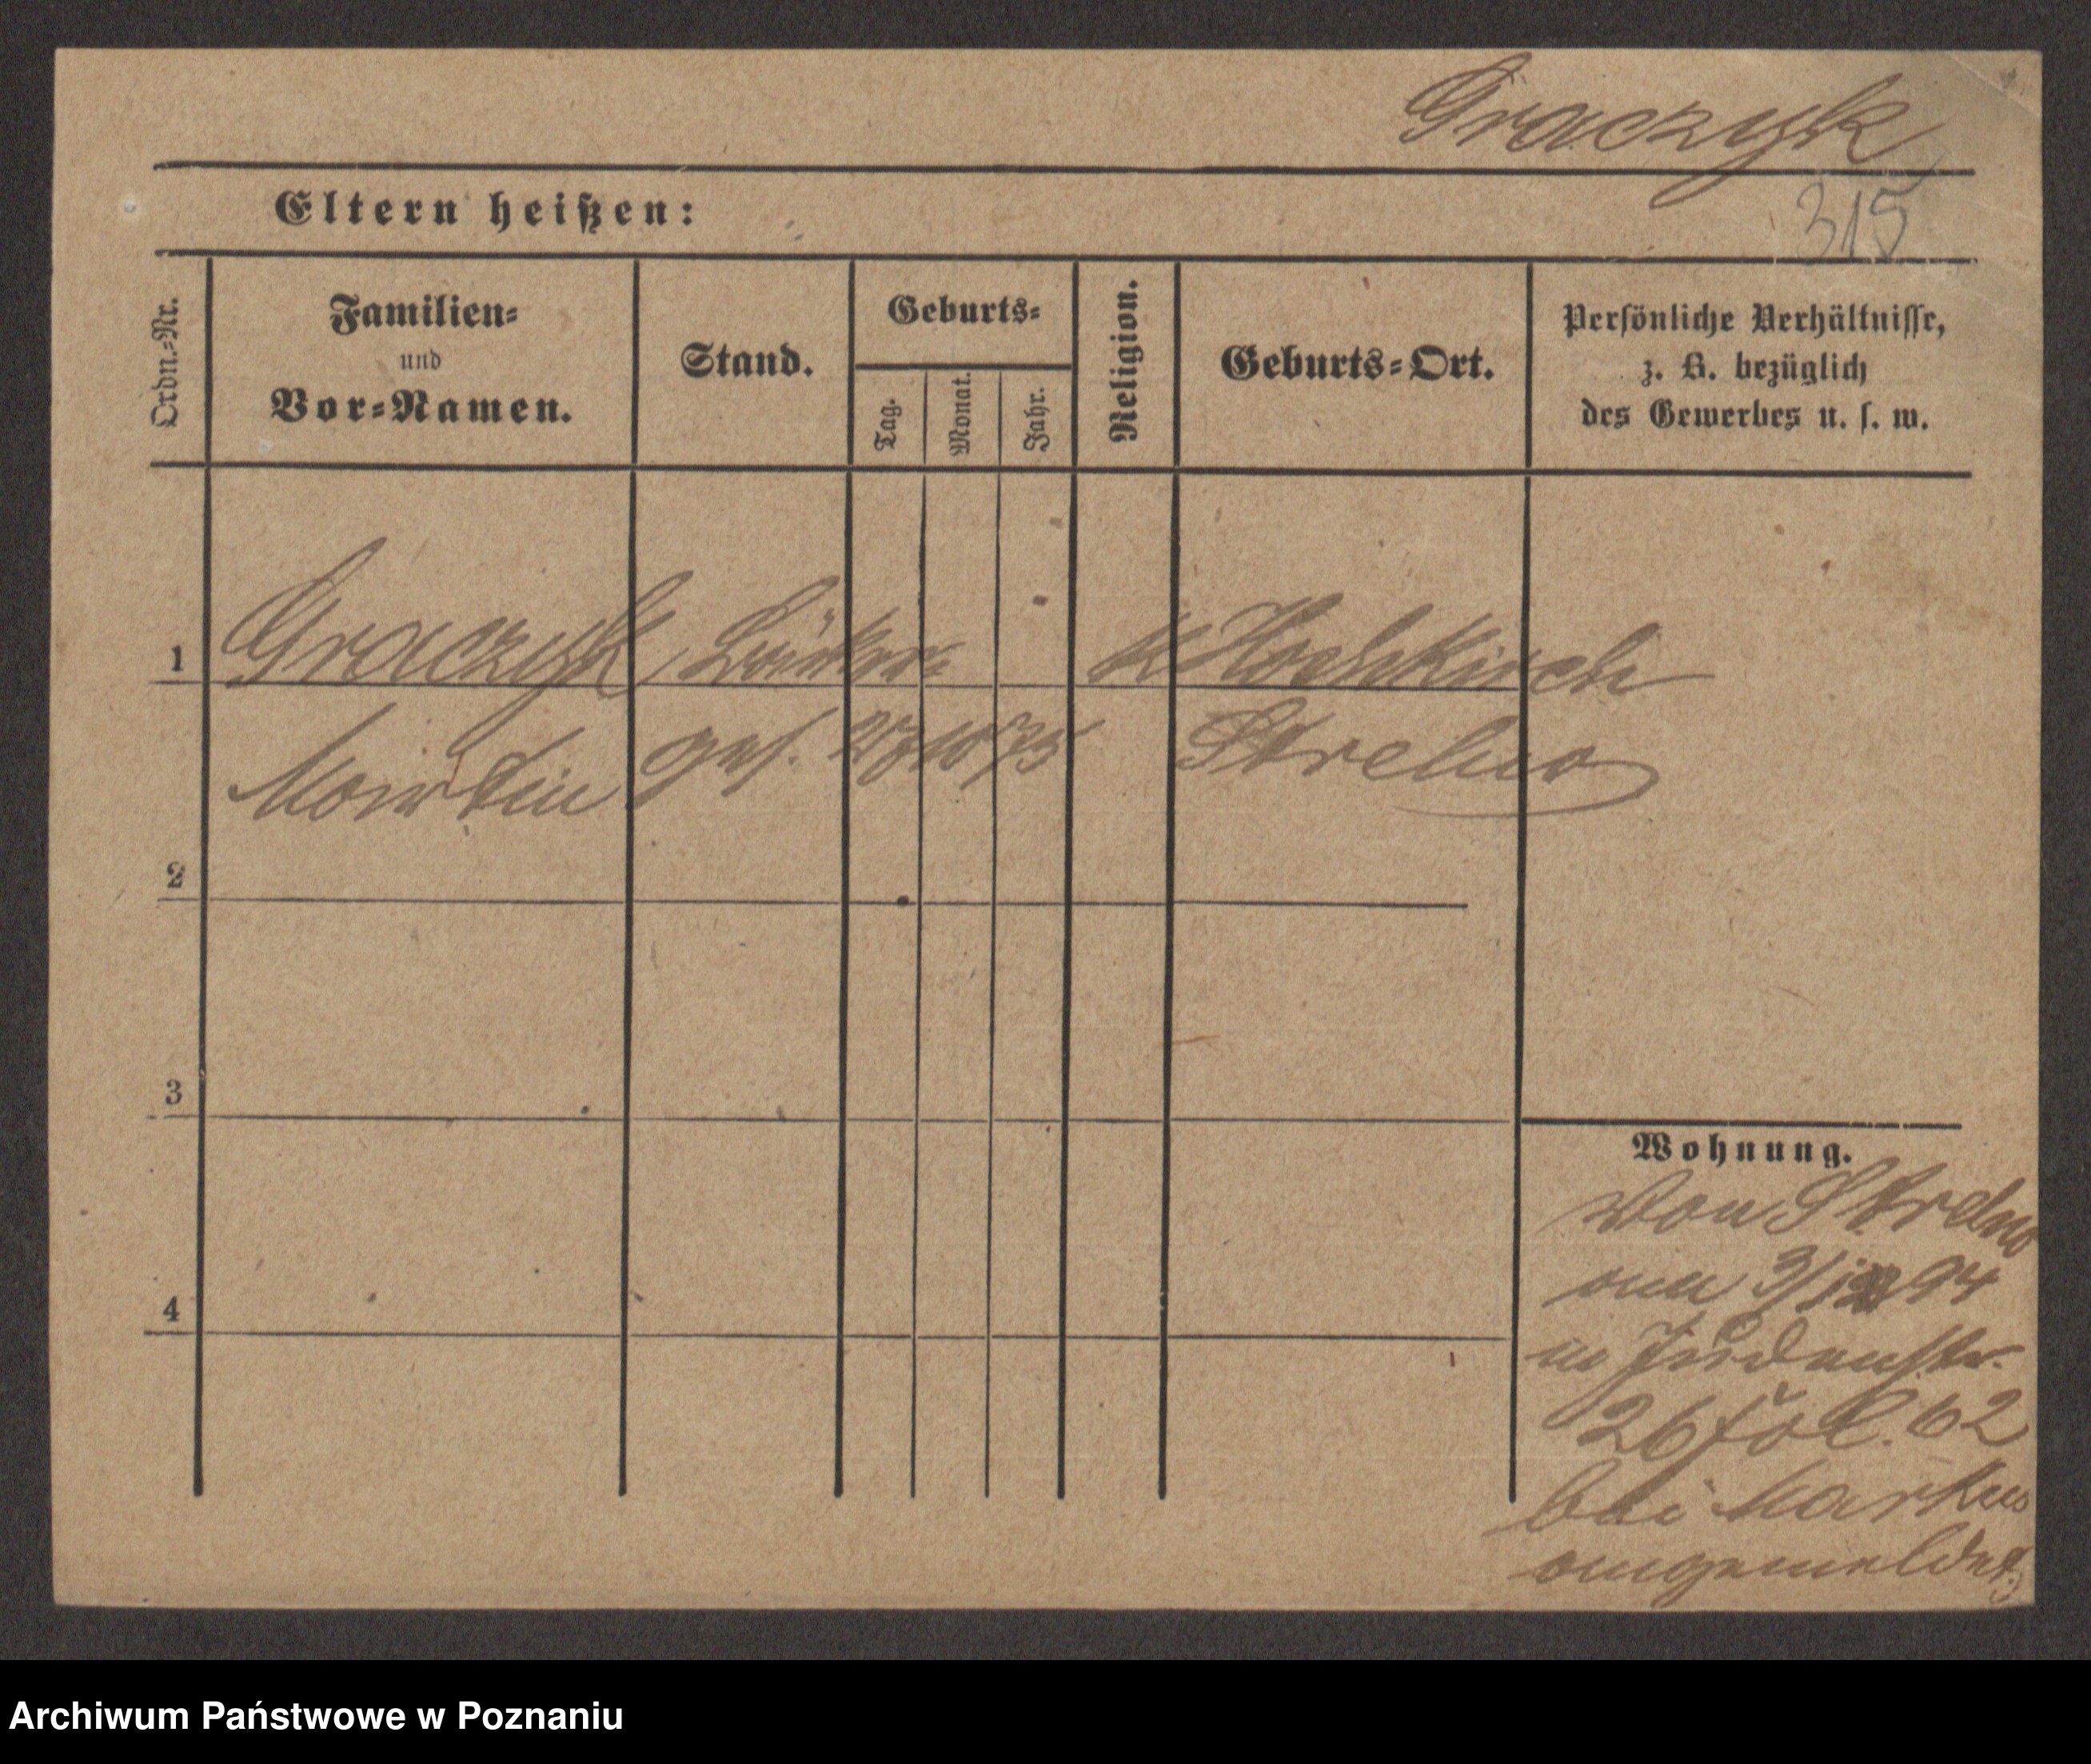 Graczyk
315
Eltern heißen:
Ordn.-Nr.
Familien-
und
Vor-Namen.
Stand.
Geburts-
Tag.
Monat.
Jahr.
Religion.
Geburts-Ort.
Persönliche Verhältnisse,
z. B. bezüglich
des Gewerbes u. s. w.
1 Graczyk Bäcker- K Hochkirch
Martin ges. 27 10 75 Strelno
2
3
4
Wohnung.
Von Strelno
am 3/12 94
in Judenstr.
26 fol. 62
bei Markus
angemeldet.
Archiwum Państwowe w Poznaniu